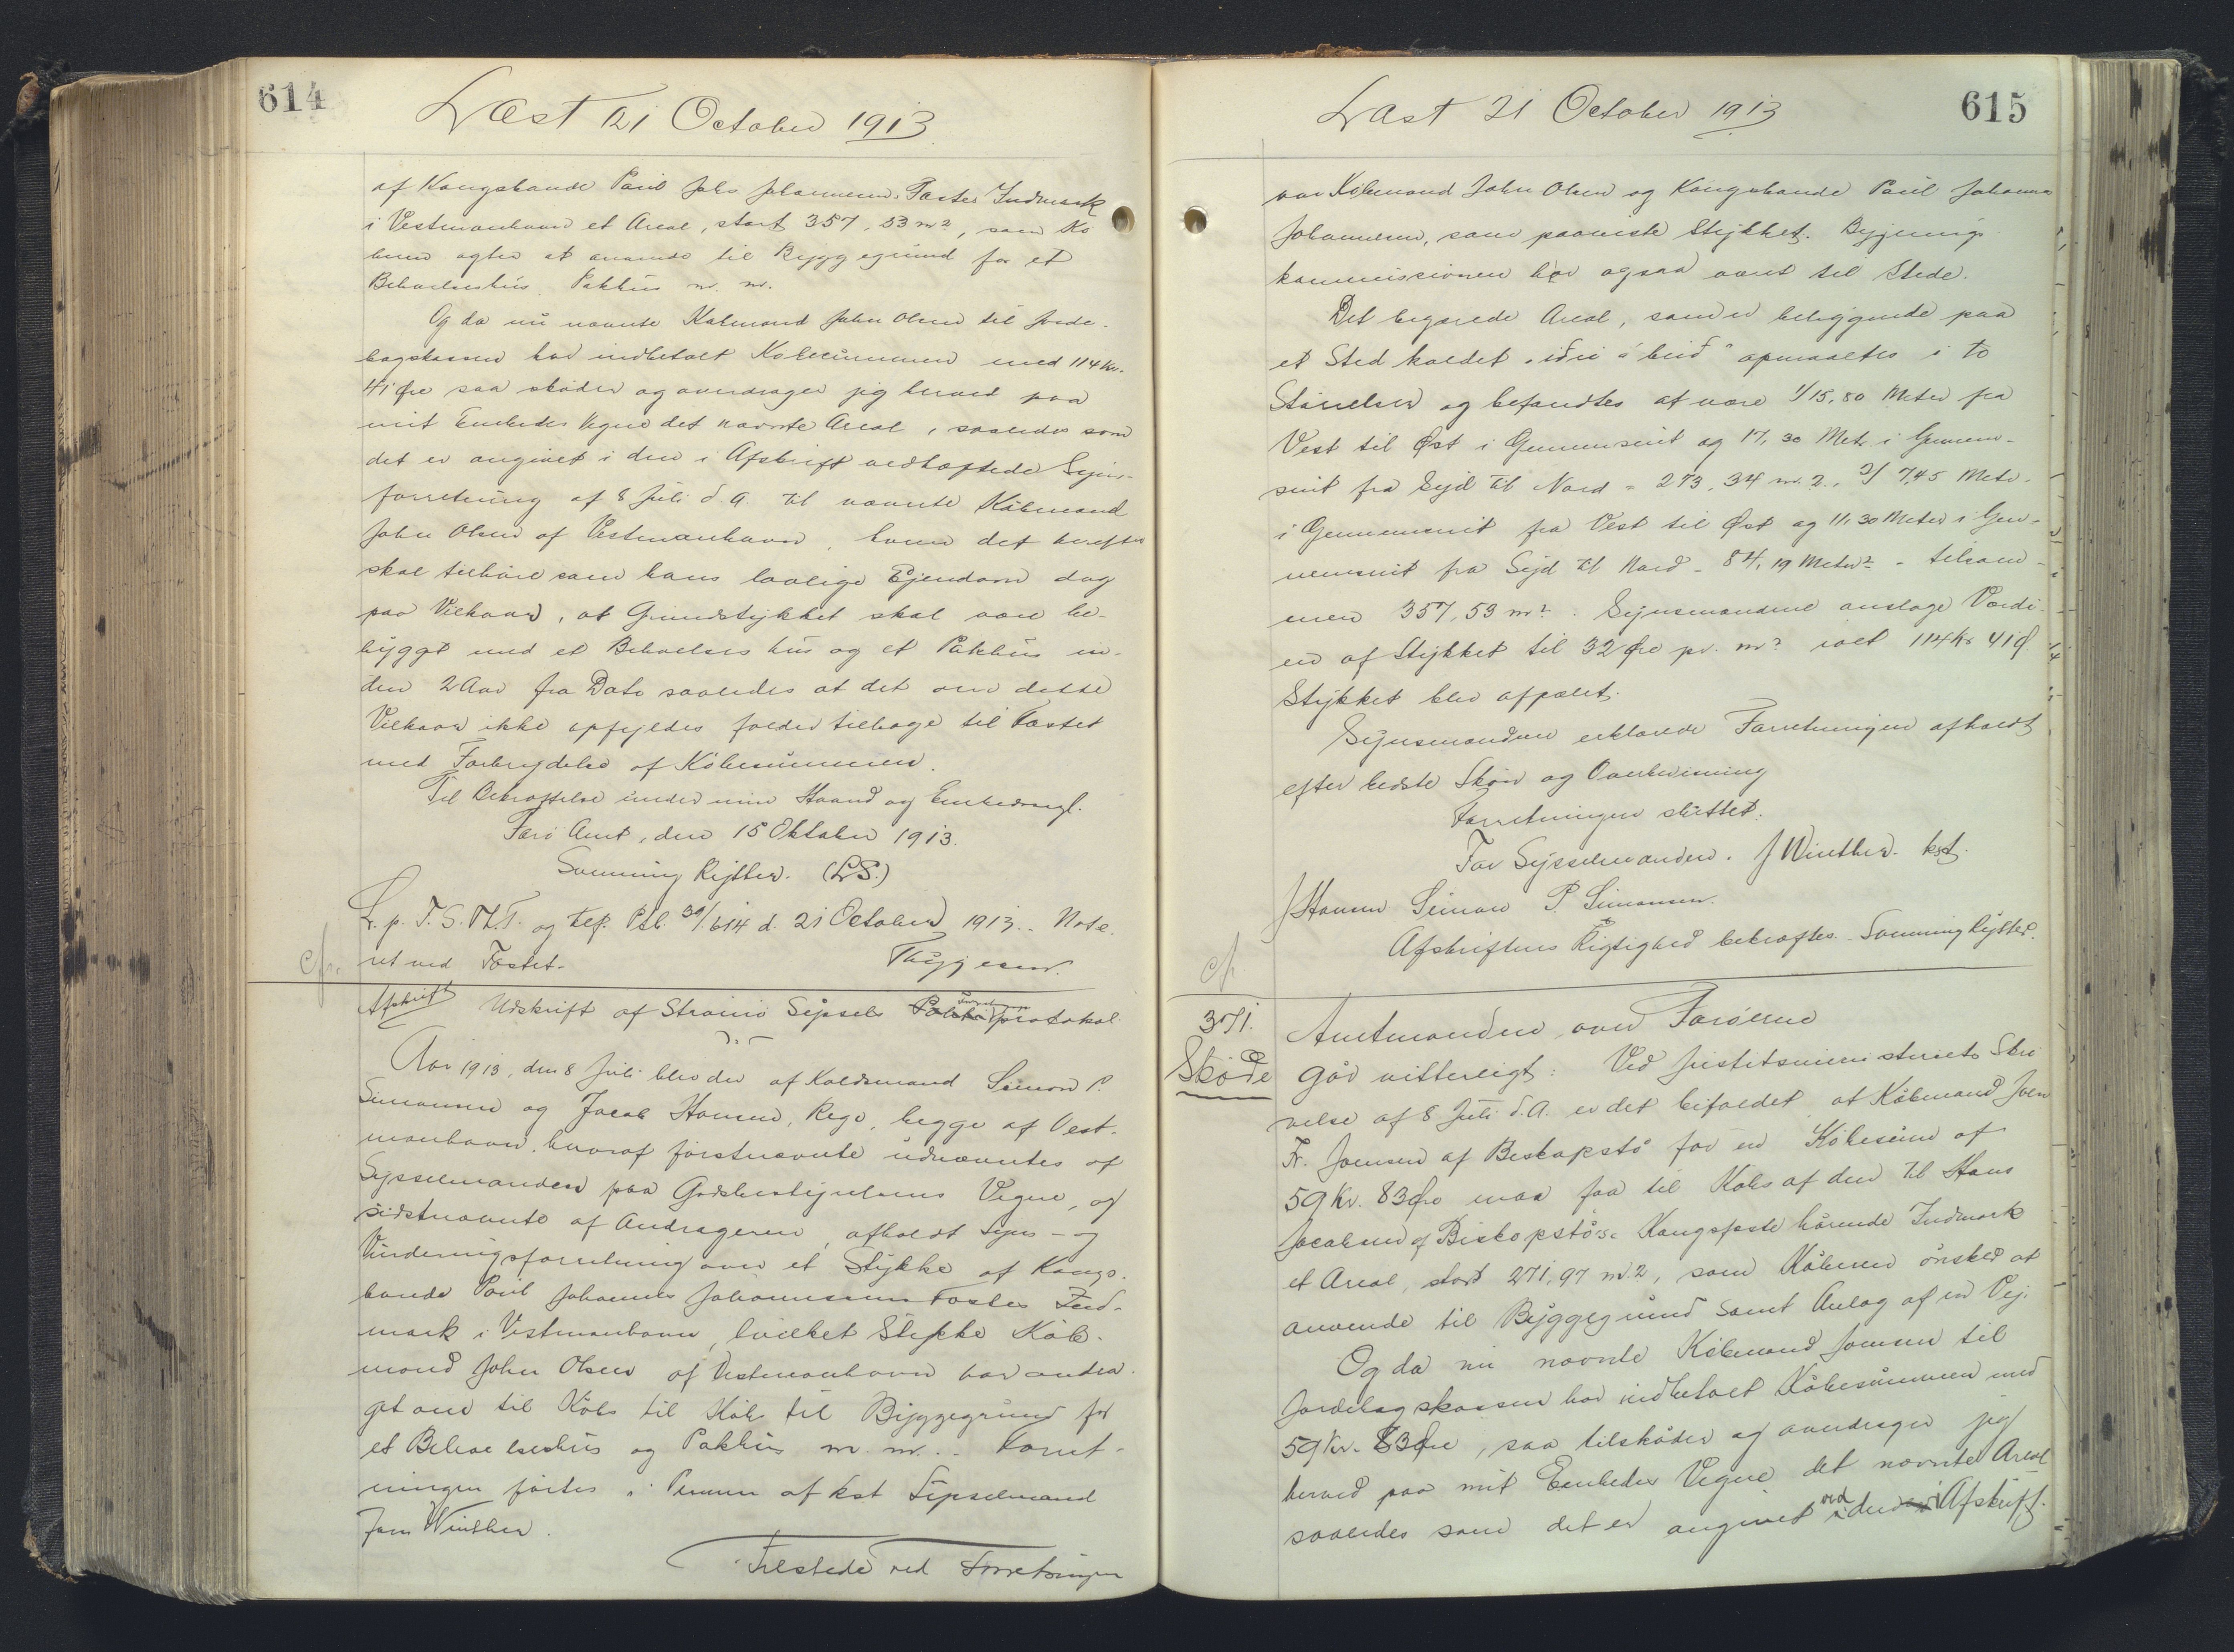 614
Læst 21 October 1913
af Kongsbonde Poul Johs Johannesens Fæstes Indmark
i Vestmanhavn et Areal, stort 357,53 m2, som Kø
beren agter at anvende til Byggegrund for et
Beboelseshus Pakhus m. m.
Og da nu nævnte Købmand John Olsen til Jorde-
bogskassen har indbetalt Købesummen med 114 Kr.
41 Øre saa skøder og overdrager jeg herved paa
mit Embedes Vegne det nævnte Areal, saaledes som
det er angivet i den i Afskrift vedhæftede Syns-
forretning af 8 Juli d. A. til nævnte Købmand
John Olsen af Vestmanhavn, hvem det herefter
skal tilhøre som hans lovlige Ejendom dog
paa Vilkaar, at Grundstykket skal være be-
bygget med et Beboelseshus og et Pakhus in-
den 2 Aar fra Dato saaledes at det om dette
Vilkaar ikke opfyldes falder tilbage til Fæstet
med Forbrydelse af Købesummen.
Til Bekræftelse under min Haand og Embedssegl.
Færø Amt, den 15 Oktober 1913.
Svenning Rytter. (LS.)
L. p. F. S. M. T. og tef. Ptb. 30/614 d. 21 October 1913. Note-
ret ved Fæstet.
Thygesen.
cfr.
Afskrift Udskrift af Strømø Syssels Politi Forretnings protokol
Aar 1913, den 8 Juli blev der af Kaldsmand Simon P.
Simonsen og Jacob Hansen, Rego, begge af Vest-
manhavn, hvoraf førstnævnte udnævntes af
Sysselmanden paa Godsbestyrelsens Vegne, og
sidstnævnte af Andrageren, afholdt Syns- og
Vurderingsforretning over et Stykke af Kongs-
bonde Poul Johannes Johannesens Fæstes Ind-
mark i Vestmanhavn, hvilket Stykke Køb-
mand John Olsen af Vestmanhavn har andra-
get om til Købs til Købs til Byggegrund for
et Beboelseshus og Pakhus m. m.. Forret-
ningen førtes i Pennen af kst Sysselmand
Jens Winther.
Tilstede ved Forretningen
615
Læst 21 October 1913
var Købmand John Olsen og Kongsbonde Poul Johannes
Johannesen, som paaviste Stykket. Bygnings-
kommissionen har ogsaa været til Stede.
Det begærede Areal, som er beliggende paa
et Sted kaldet "idni á beid" opmaaltes i to
Størrelser og befandtes at være 1/ 15,80 Meter fra
Vest til Øst i Gennemsnit og 17,30 Met. i Gennem-
snit fra Syd til Nord = 273,34 m. 2., 2/ 7,45 Mete-
i Gennemsnit fra Vest til Øst og 11,30 Meter i Gen-
nemsnit fra Syd til Nord - 84,19 Meter2 - tilsam-
men 357,53 m2. Synsmændene anslog Værdi-
en af Stykket til 32 Øre pr. m2 ialt 114 Kr 41 Ø.
Stykket blev afpælet.
Synsmændene erklærede Forretningen afholdt
efter bedste Skøn og Overbevisning
Forretningen sluttet.
For Sysselmanden. J Winther. kst.
J Hansen Simon P. Simonsen.
Afskriftens Rigtighed bekræftes. Svenning Rytter.
cfr
371.
Skøde
Amtmanden over Færøerne
gør vitterligt: Ved Justitsministeriets Skri-
velse af 8 Juli d. A. er det bifaldet, at Købmand Joen
Fr. Joensen af Biskopstø for en Købesum af
59 Kr. 83 Øre maa faa til Købs af den til Hans
Jacobsen af Biskopstøs Kongsfæste hørende Indmark
et Areal, stort 271,97 m. 2, som Køberen ønsker at
anvende til Byggegrund samt Anlæg af en Vej.
Og da nu nævnte Købmand Joensen til
Jordebogskassen har indbetalt Købesummen med
59 Kr. 83 Øre, saa tilskøder og overdrager jeg
herved paa mit Embedes Vegne det nævnte Areal
saaledes som det er angivet i den ved i Afskrift.